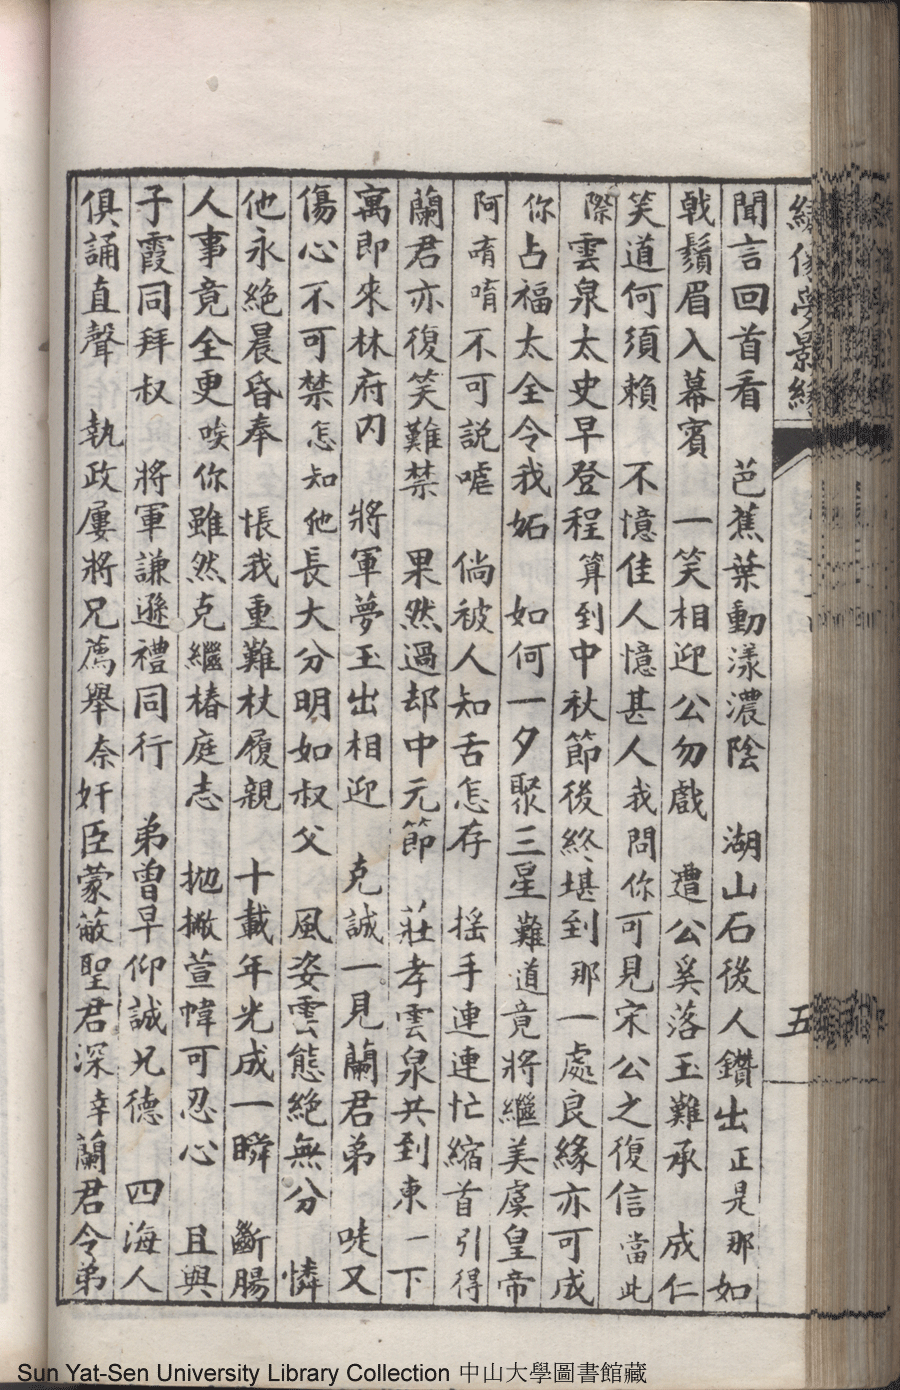 繡像夢影緣
五
聞言回首看　芭蕉葉動漾濃陰　湖山石後人鑽出正是那如
戟鬚眉入幕賓　一笑相迎公勿戲　遭公奚落玉難承　成仁
笑道何須賴　不憶佳人憶甚人我問你可見宋公之復信當此
際雲泉太史早登程算到中秋節後終堪到那一處良緣亦可成
你占福太全令我妬　如何一夕聚三星難道竟將繼美虞皇帝
阿唷唷不可説嘘　倘被人知舌怎存　揺手連連忙縮首引得
蘭君亦復笑難禁　果然過却中元節　莊孝雲泉共到東一下
寓即來林府内　將軍夢玉出相迎　克誠一見蘭君弟　哎又
傷心不可禁怎知他長大分明如叔父　風姿雲態絶無分　憐
他永絶晨昏奉　悵我重難杖履親　十載年光成一瞬　斷腸
人事竟全更唉你雖然克繼椿庭志　拋撇萱幃可忍心　且與
子霞同拜叔　將軍謙遜禮同行　弟曾早仰誠兄德　四海人
俱誦直聲　執政屢將兄薦舉奈奸臣蒙蔽聖君深幸蘭君令弟
Sun Yat-Sen University Library Collection 中山大學圖書館藏